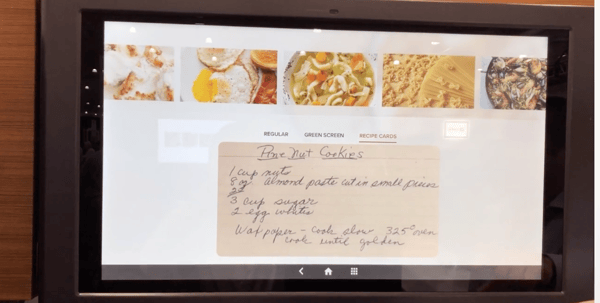 REGULAR GREEN SCREEN RECIPE CARDS
Pine Nut Cookies
1 cup nuts
8 oz. almond paste cut in small pieces
3 cup sugar
2 egg whites
Wax paper - Cook slow 325° oven
cook until golden